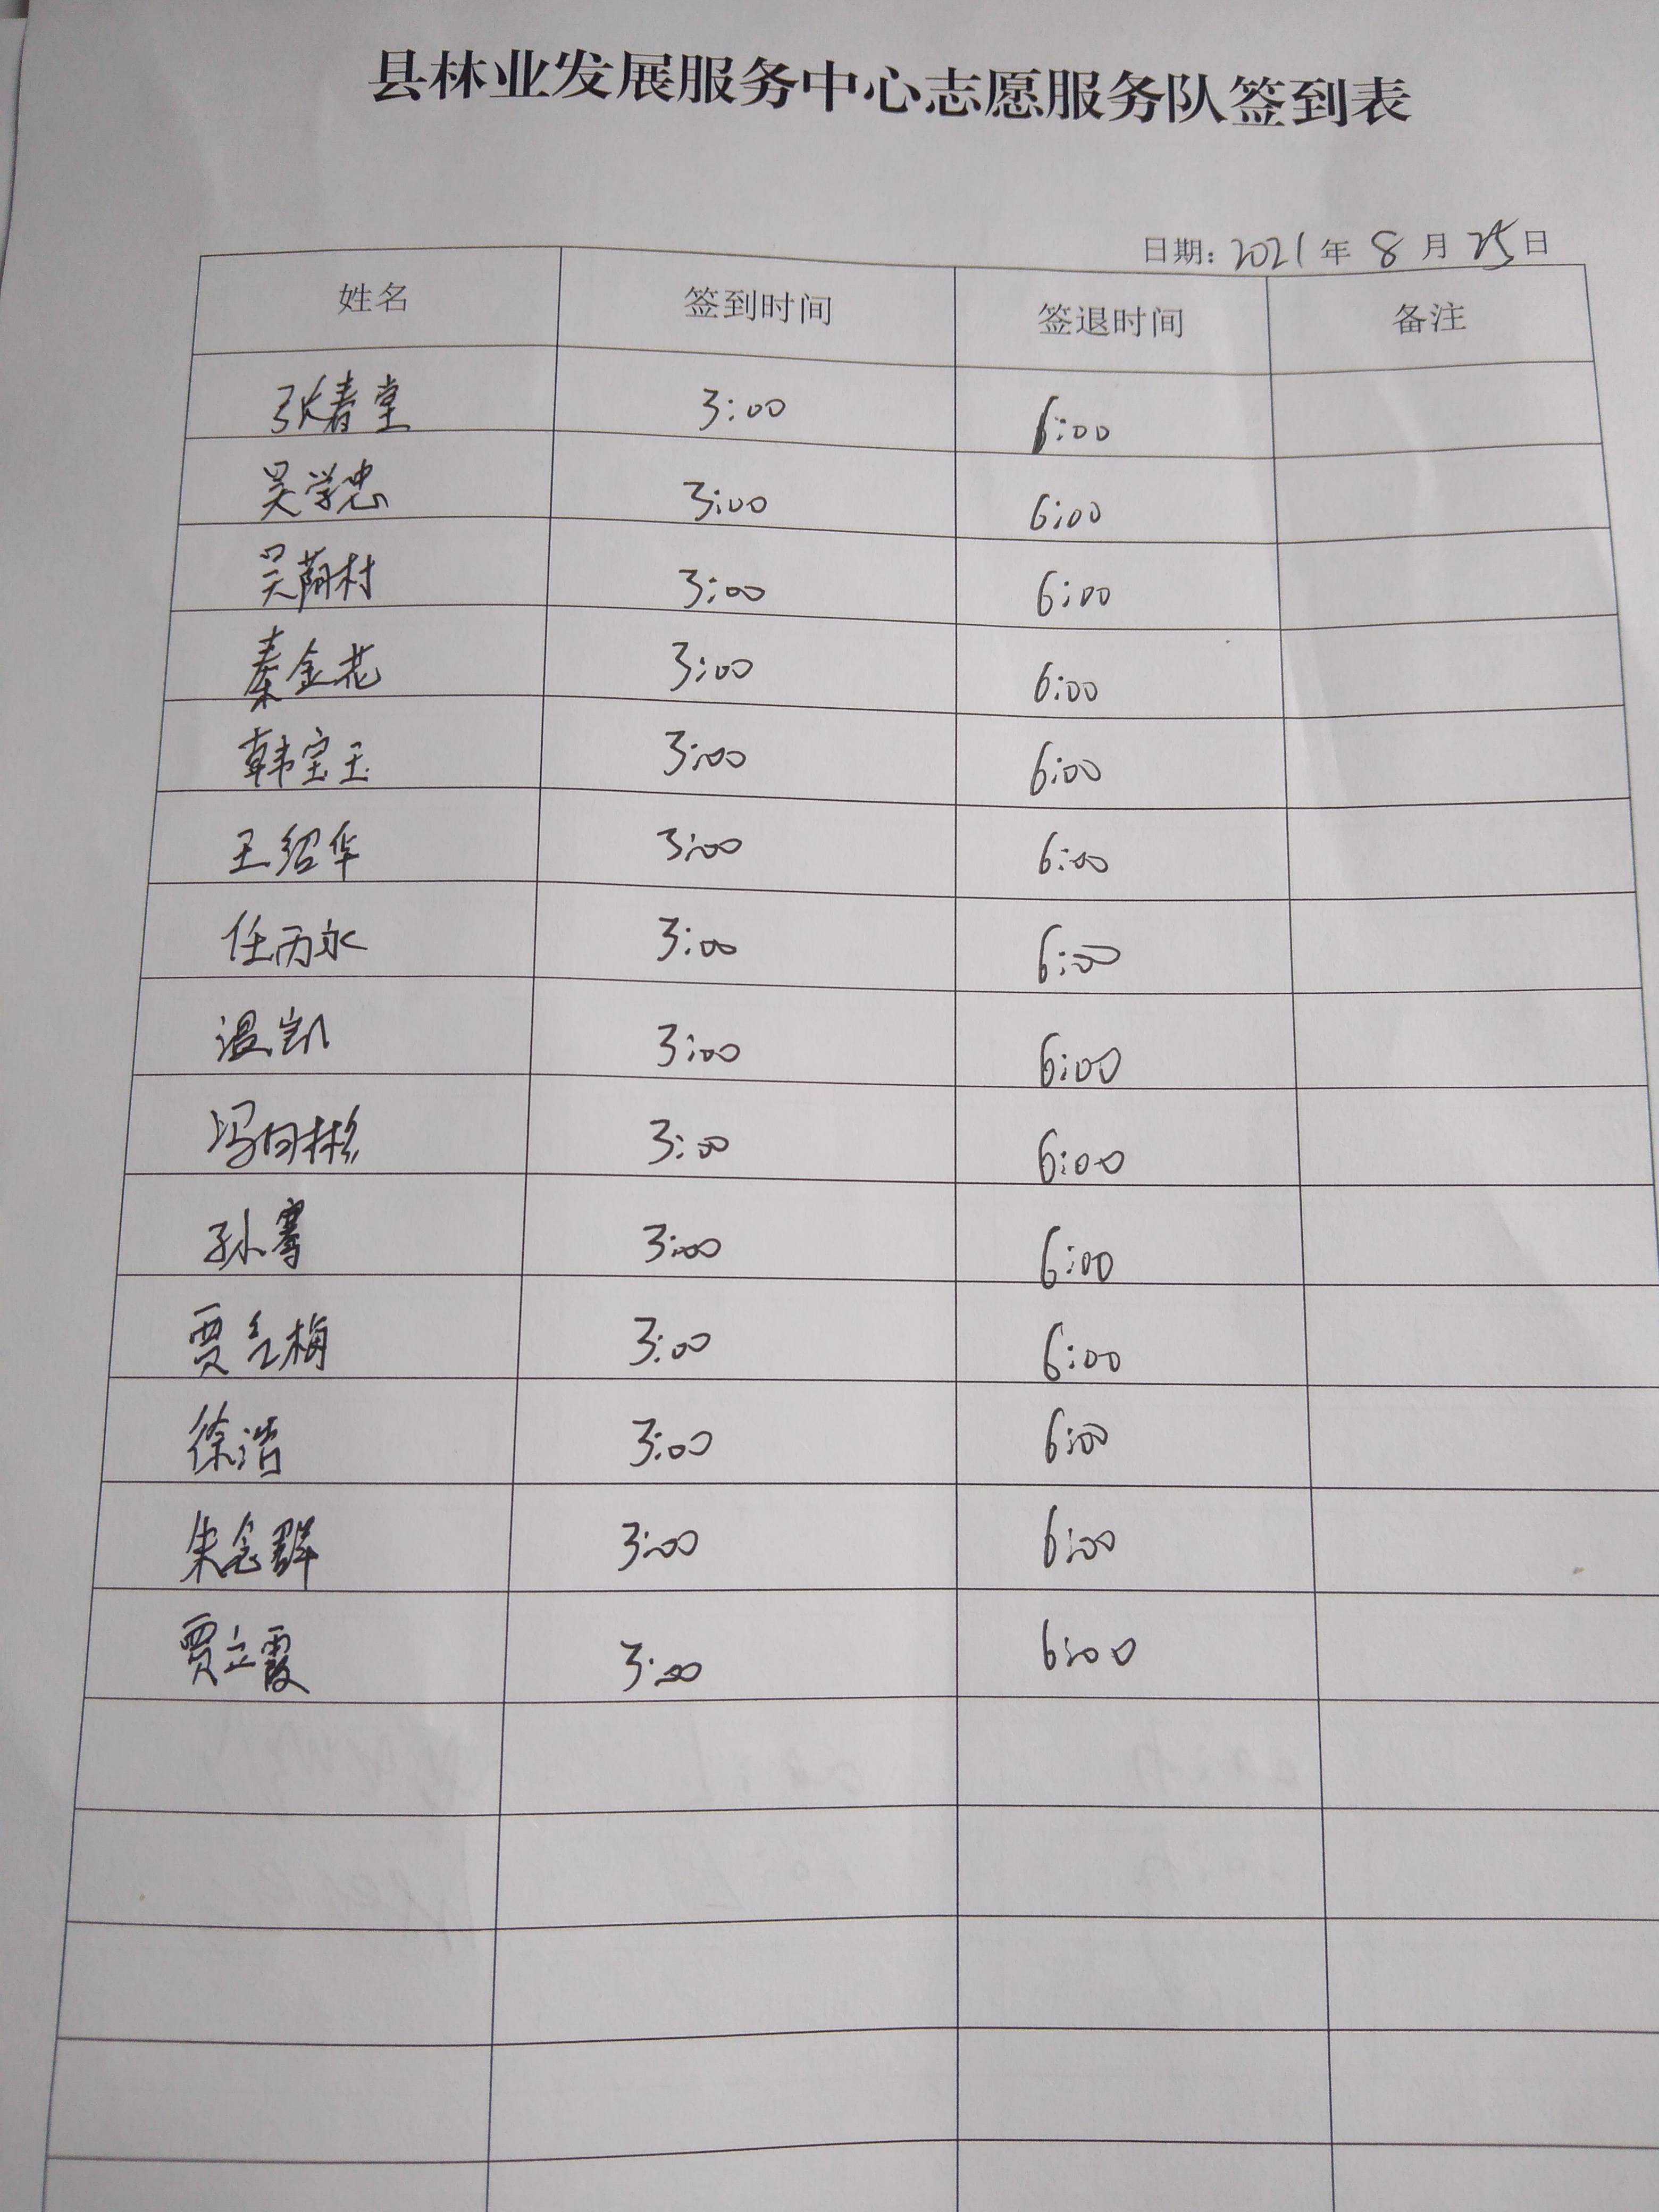 县林业发展服务中心志愿服务队签到表
日期: 2021 年 8 月 25 日
姓名 签到时间 签退时间 备注
张春堂 3:00 6:00
吴学忠 3:00 6:00
吴荫村 3:00 6:00
秦金花 3:00 6:00
韩宝玉 3:00 6:00
王绍华 3:00 6:00
任丙永 3:00 6:00
温凯 3:00 6:00
冯向彬 3:00 6:00
孙骞 3:00 6:00
贾红梅 3:00 6:00
徐浩 3:00 6:00
朱念群 3:00 6:00
贾立霞 3:00 6:00